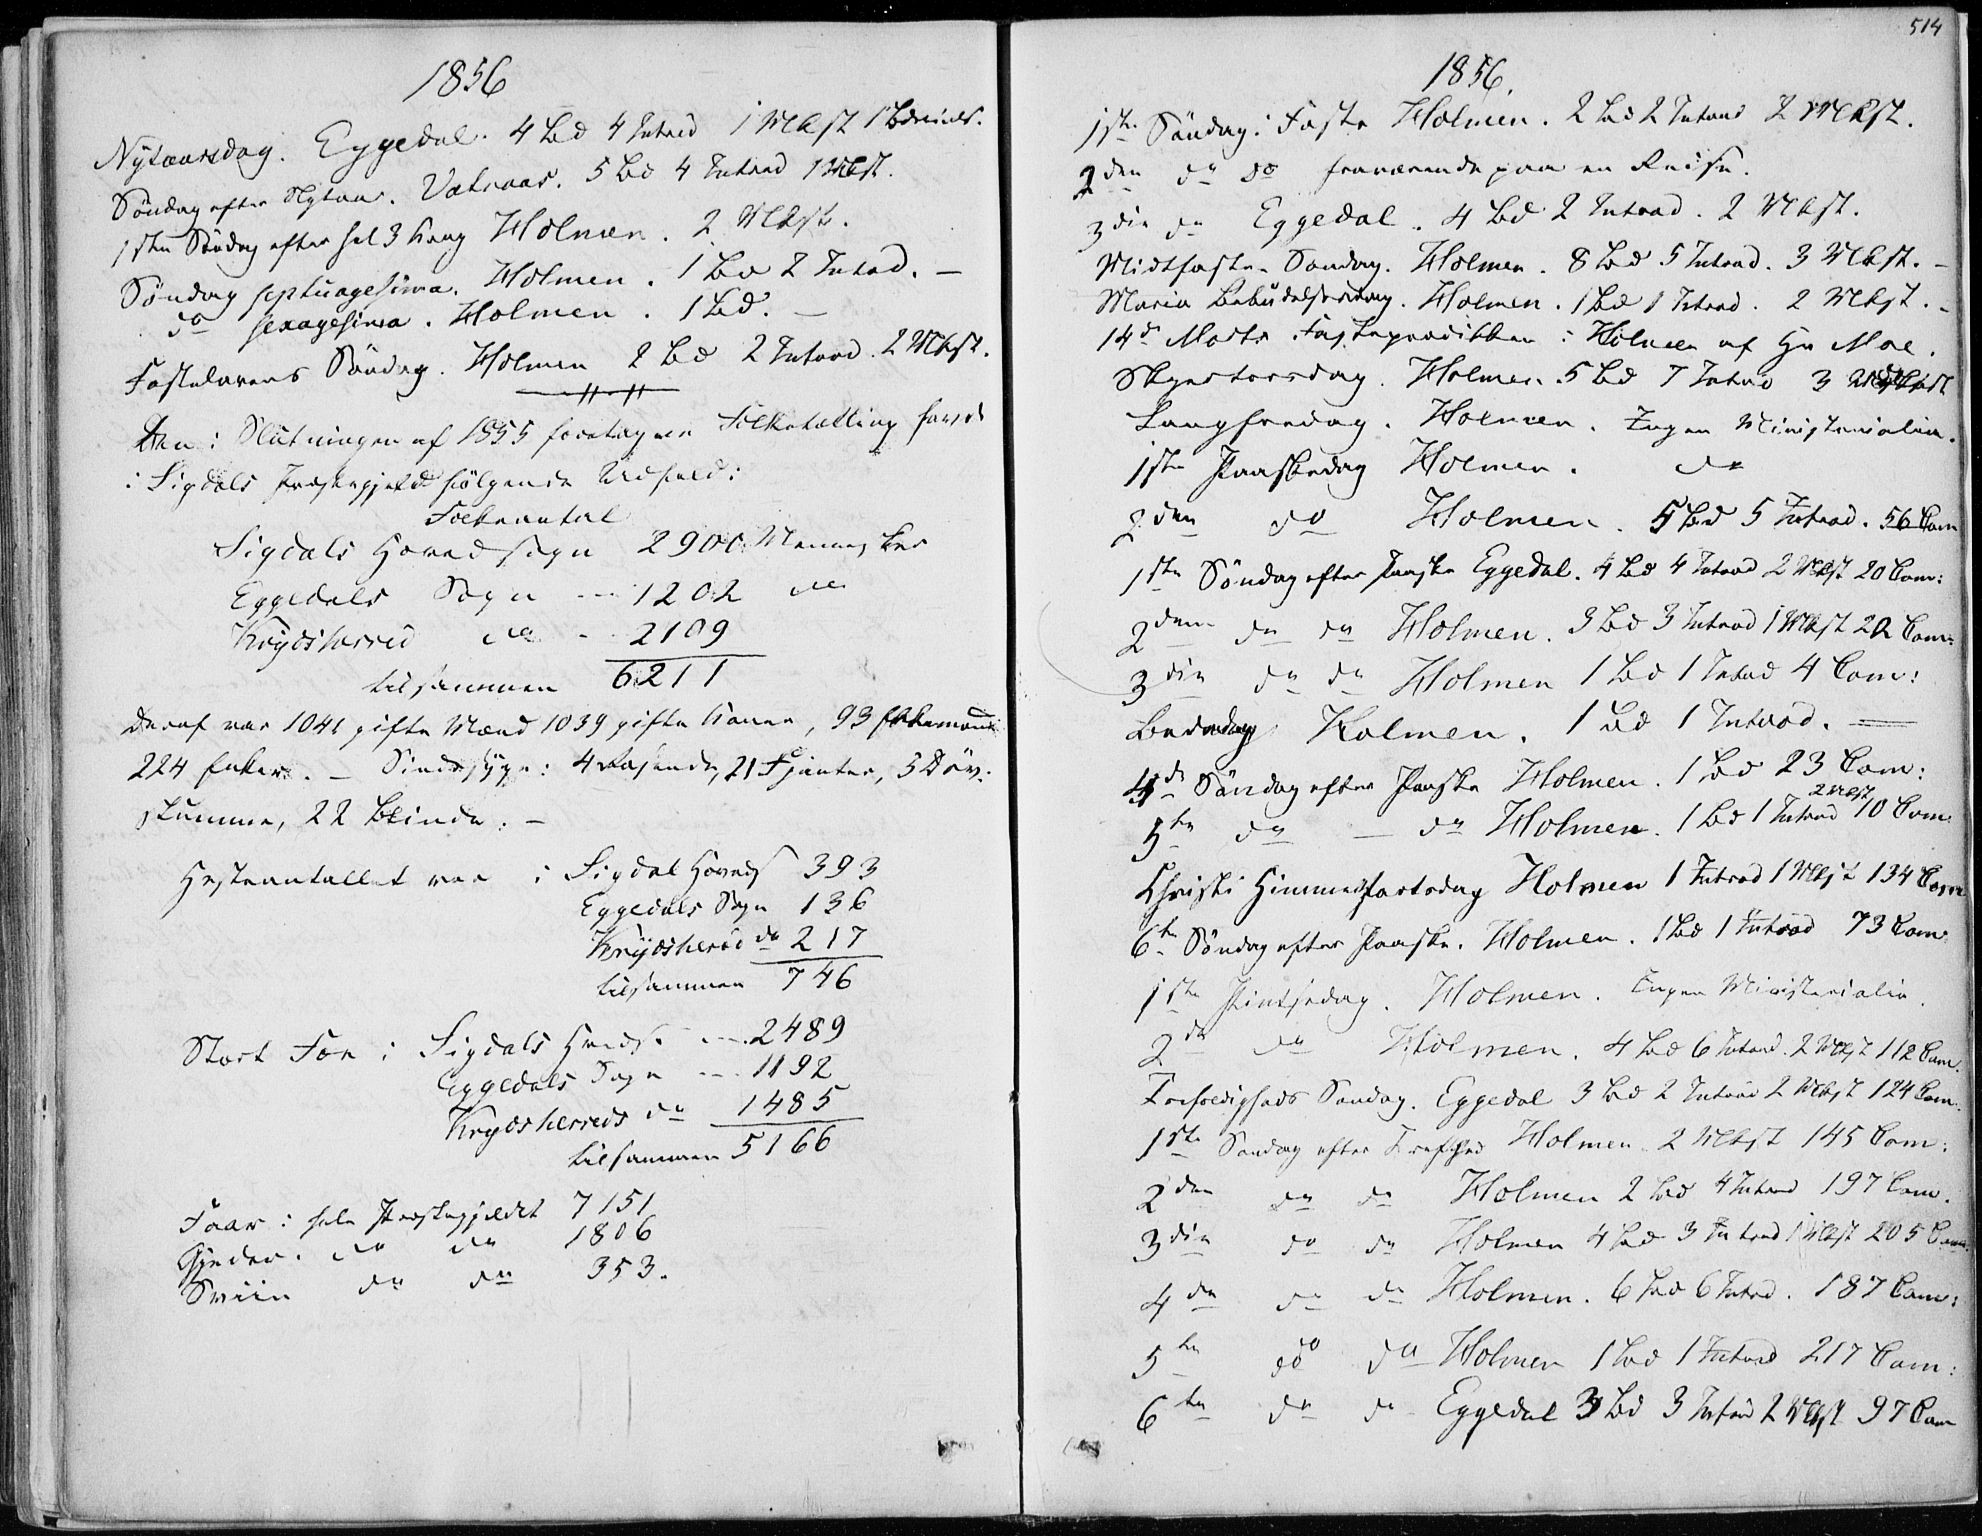 1856
Nytaarsdag. Eggedal. 4 Bd 4 Introd 1 Vlkst
Søndag efter Nytaar. Vatnaas. 5 Bd 4 Introd 1 Vlkst.
1ste Søndag efter hel 3 Kong Holmen. 2 Vlkst.
Søndag septuagesima. Holmen. 1 Bd 2 Introd. —
do sexagesima. Holmen. 1 Bd. —
Fastelavens Søndag. Holmen 2 Bd 2 Introd. 2 Vlkst.
Den i Slutningen af 1855 foretagne Folketælling havde
i Sigdals Præstegjeld følgende Udfald:
Folkeantal
Sigdals Hovedsogn 2900 Mennesker
Eggedals Sogn --- 1202 do
Krydsherred do - - 2109
tilsammen 6211
deraf var 1041 gifte Mænd 1039 gifte Koner, 93 Enkemænd
224 Enker. — Sindssyge: 4 Rasende, 21 Fjanter, 3 Døv-
stumme, 22 Blinde. —
Hesteantallet var i Sigdal Hoveds 393
Eggedals Sogn 136
Krydsherred do 217
tilsammen 746
Stort Fæe i Sigdals Hveds. --- 2489
Eggedals Sogn --- 1192
Krydsherreds do 1485
tilsammen 5166
Faar i hele Præstegjeldet 7151
Gjeder. do do 1806
Sviin do do 353.
514
1856.
1ste Søndag i Faste Holmen. 2 Bd 2 Introd 2 Vlkst.
2den do do fraværende paa en Reise.
3die do Eggedal. 4 Bd 2 Introd. 2 Vlkst.
Midfaste Søndag. Holmen. 8 Bd 5 Introd. 3 Vlkst. —
Maria Bebudelsesdag. Holmen. 1 Bd 1 Introd. 2 Vlkst. -
14de Marts Fasteprædiken i Holmen af Hr Moe.
Skjertorsdag. Holmen. 5 Bd 7 Introd 3 Vlkst
Langfredag. Holmen. Ingen Ministerialia.
1ste Paaskedag Holmen. do
2den do Holmen. 5 Bd 5 Introd. 56 Com
1ste Søndag efter Paaske Eggedal. 4 Bd 4 Introd 2 Vlkst 20 Com:
2den do do Holmen. 3 Bd 3 Introd 1 Vlkst 22 Com:
3die do do Holmen 1 Bd 1 Introd 4 Com:
Bededag Holmen. 1 Bd 1 Introd. —
4de Søndag efter Paaske Holmen. 1 Bd 23 Com:
5te do — do Holmen. 1 Bd 1 Introd 2 Vlkst 10 Com.
Christi Himmelfartsdag Holmen 1 Introd 1 Vlkst 134 Com
6te Søndag efter Paaske. Holmen. 1 Bd 1 Introd 73 Com.
1ste Pintsedag. Holmen. Ingen Ministerialia.
2den do Holmen. 4 Bd 6 Introd. 2 Vlkst 112 Com.
Trefoldigheds Søndag. Eggedal 3 Bd 2 Introd 2 Vlkst 124 Com.
1ste Søndag efter Trefhed Holmen. 2 Vlkst 145 Com:
2den do do Holmen 2 Bd 4 Introd 197 Com.
3die do do Holmen 4 Bd 3 Introd 1 Vlkst 205 Com.
4de do do Holmen. 6 Bd 6 Introd. 187 Com:
5te do do Holmen 1 Bd 1 Introd 217 Com:
6te do do Eggedal 3 Bd 3 Introd 2 Vlkst 97 Com